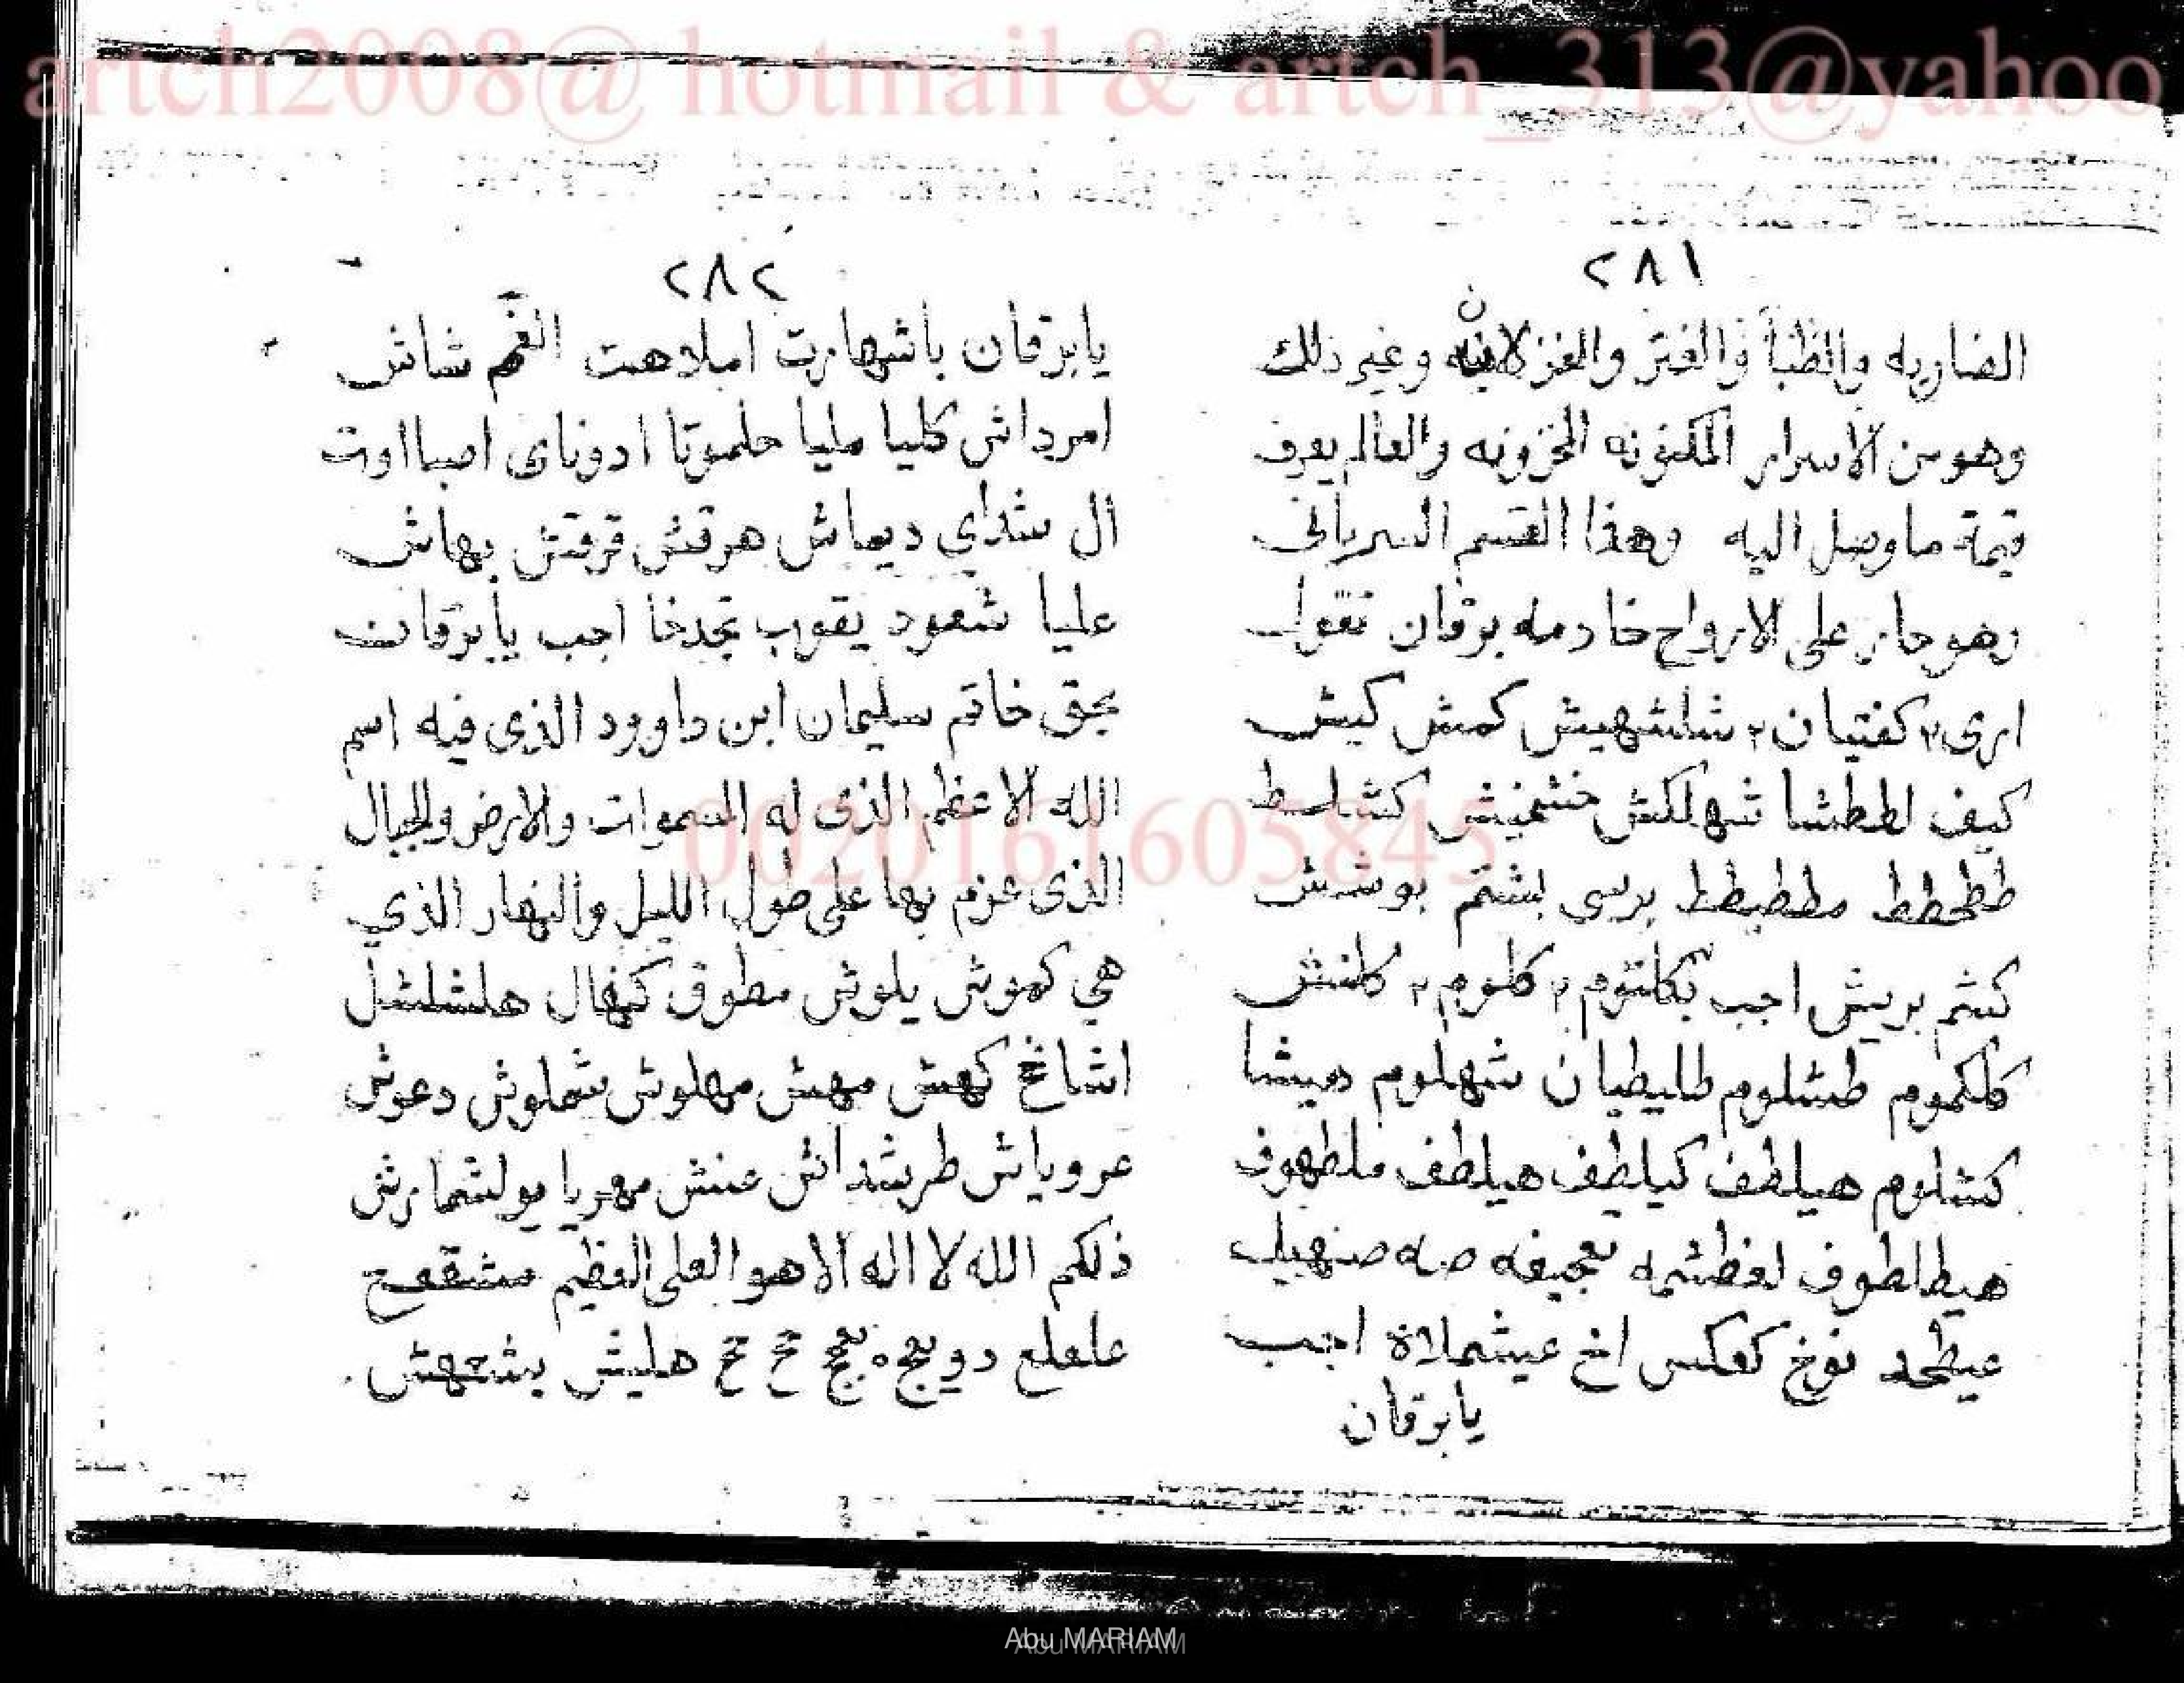 artch2008@ hotmail & artch_313@yahoo
٢٨١
الضاريه والظبأ والفتر والغزلانيه وغير ذلك
وهو من الاسرار المكنونه المخزونه والعالم يعرف
قيمة ماوصل اليه وهذا القسم السريانى
وهو جار على الارواح خادمه برقان تقول
ارى ٢ كفتيان ٢ شلشهيش كمش كيش
كيف لطلطشا شهلكش خشمنيش كشلسط
بوشش بشتم برسى مططبطط ططحطط
كشم بريش اجب بكلتوم ٢ كلوم ٢ كلنش
كلكموم طشلوم طليطيان شهلوم ميشا
كشلوم هيلطف كيلطف هيلطف ملطهوف
هيطلطوف لغطشمه صه صنهيل
نوخ كعكس اخ عيشملاة اجب
يابرقان
٢٨٢
يابرقان باشهارت املاهت الغم شاش
امرداش كليا مليا حلموتا ادوناى اصبااوت
ال شداي ديماش هرقش قرقش بهاش
عليا شعود يقوب اجب يابرقان
بحق خاتم سليمان ابن داوود الذى فيه اسم
الله الاعظم الذى له السموات والارض والجبال
الذى عزم بها على طول الليل والنهار الذي
هي كهوش يلوش مطوق كيفال هلشلشل
اشماخ كهش مهش مهلوش شملوش دعوش
عروياش طرشداش عنش مهريا يولشمارش
ذلكم الله لا اله الا هو العلى العظيم مشقفح
علعلع هليش بشتهش
0020161605845
Abu MARIAM